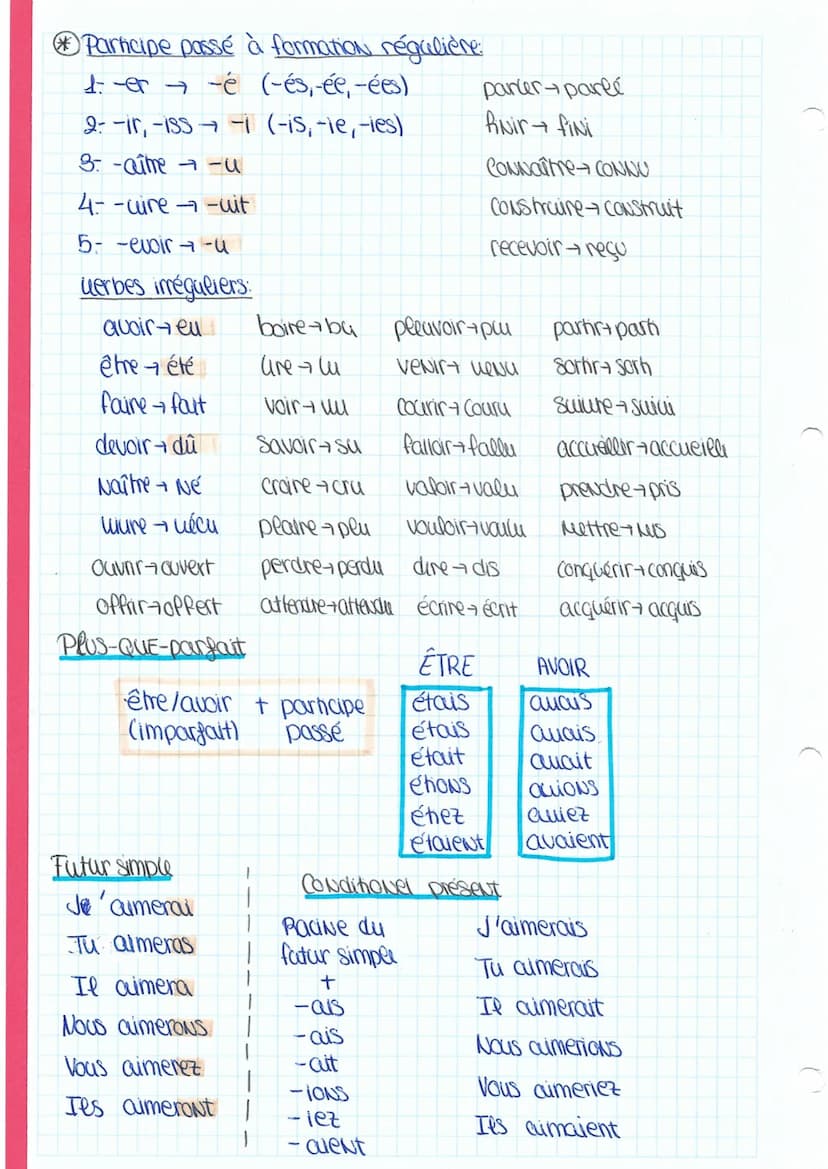 * Participe passé à formation régulière:
1- -er → -é (-és, -ée, -ées) parler → parlé
2- -ir, -iss → -i (-is, -ie, -ies) finir → fini
3- -aître → -u connaître → connu
4- -uire → -uit construire → construit
5- -evoir → -u recevoir → reçu
Verbes irréguliers:
avoir → eu boire → bu pleuvoir → plu partir → parti
être → été lire → lu venir → venu sortir → sorti
faire → fait voir → vu courir → couru suivre → suivi
devoir → dû savoir → su falloir → fallu accueillir → accueilli
naître → né croire → cru valoir → valu prendre → pris
vivre → vécu plaire → plu vouloir → voulu mettre → mis
ouvrir → ouvert perdre → perdu dire → dis conquérir → conquis
offrir → offert attendre → attendu écrire → écrit acquérir → acquis
Plus-QUE-parfait
ÊTRE AVOIR
être/avoir + participe
(imparfait) passé
étais avais
étais avais
était avait
étions avions
étiez aviez
étaient avaient
Futur simple
J'aimerai
Tu aimeras
Il aimera
Nous aimerons
Vous aimerez
Ils aimeront
Conditionel présent
Racine du
futur simple
+
-ais
-ais
-ait
-ions
-iez
-aient
J'aimerais
Tu aimerais
Il aimerait
Nous aimerions
Vous aimeriez
Ils aimaient